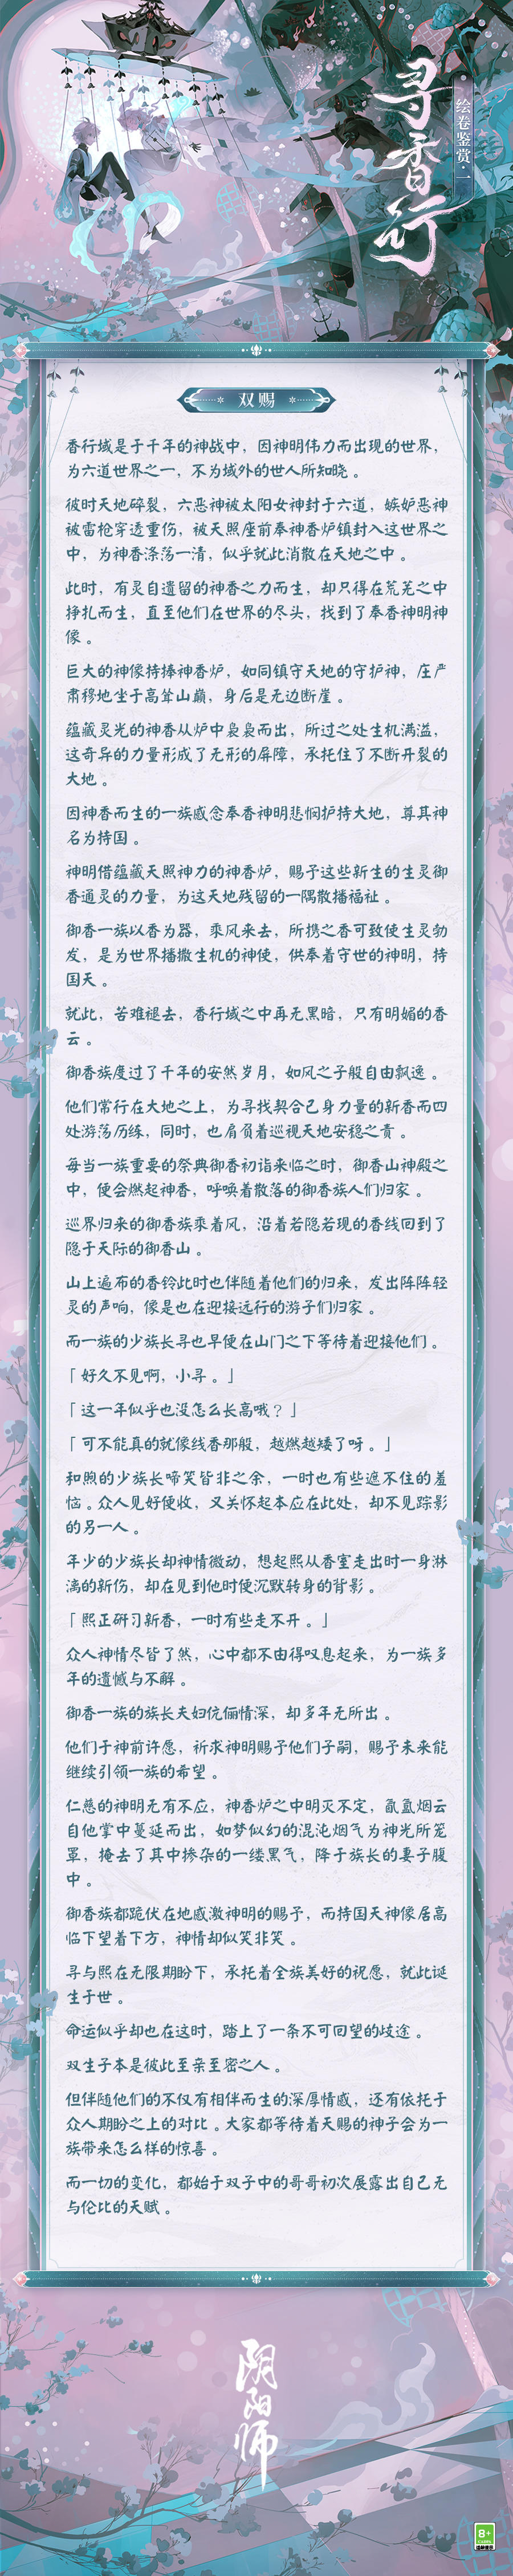 寻香行
绘卷鉴赏·一
双赐
香行域是于千年的神战中，因神明伟力而出现的世界，
为六道世界之一，不为域外的世人所知晓。
彼时天地碎裂，六恶神被太阳女神封于六道，嫉妒恶神
被雷枪穿透重伤，被天照座前奉神香炉镇封入这世界之
中，为神香涤荡一清，似乎就此消散在天地之中。
此时，有灵自遗留的神香之力而生，却只得在荒芜之中
挣扎而生，直至他们在世界的尽头，找到了奉香神明神
像。
巨大的神像持捧神香炉，如同镇守天地的守护神，庄严
肃穆地坐于高耸山巅，身后是无边断崖。
蕴藏灵光的神香从炉中袅袅而出，所过之处生机满溢，
这奇异的力量形成了无形的屏障，承托住了不断开裂的
大地。
因神香而生的一族感念奉香神明悲悯护持大地，尊其神
名为持国。
神明借蕴藏天照神力的神香炉，赐予这些新生的生灵御
香通灵的力量，为这天地残留的一隅散播福祉。
御香一族以香为器，乘风来去，所携之香可致使生灵勃
发，是为世界播撒生机的神使，供奉着守世的神明，持
国天。
就此，苦难褪去，香行域之中再无黑暗，只有明媚的香
云。
御香族度过了千年的安然岁月，如风之子般自由飘逸。
他们常行在大地之上，为寻找契合己身力量的新香而四
处游荡历练，同时，也肩负着巡视天地安稳之责。
每当一族重要的祭典御香初诣来临之时，御香山神殿之
中，便会燃起神香，呼唤着散落的御香族人们归家。
巡界归来的御香族乘着风，沿着若隐若现的香线回到了
隐于天际的御香山。
山上遍布的香铃此时也伴随着他们的归来，发出阵阵轻
灵的声响，像是也在迎接远行的游子们归家。
而一族的少族长寻也早便在山门之下等待着迎接他们。
「好久不见啊，小寻。」
「这一年似乎也没怎么长高哦？」
「可不能真的就像线香那般，越燃越矮了呀。」
和煦的少族长啼笑皆非之余，一时也有些遮不住的羞
恼。众人见好便收，又关怀起本应在此处，却不见踪影
的另一人。
年少的少族长却神情微动，想起熙从香室走出时一身淋
漓的新伤，却在见到他时便沉默转身的背影。
「熙正研习新香，一时有些走不开。」
众人神情尽皆了然，心中都不由得叹息起来，为一族多
年的遗憾与不解。
御香一族的族长夫妇伉俪情深，却多年无所出。
他们于神前许愿，祈求神明赐予他们子嗣，赐予未来能
继续引领一族的希望。
仁慈的神明无有不应，神香炉之中明灭不定，氤氲烟云
自他掌中蔓延而出，如梦似幻的混沌烟气为神光所笼
罩，掩去了其中掺杂的一缕黑气，降于族长的妻子腹
中。
御香族都跪伏在地感激神明的赐予，而持国天神像居高
临下望着下方，神情却似笑非笑。
寻与熙在无限期盼下，承托着全族美好的祝愿，就此诞
生于世。
命运似乎却也在这时，踏上了一条不可回望的歧途。
双生子本是彼此至亲至密之人。
但伴随他们的不仅有相伴而生的深厚情感，还有依托于
众人期盼之上的对比。大家都等待着天赐的神子会为一
族带来怎么样的惊喜。
而一切的变化，都始于双子中的哥哥初次展露出自己无
与伦比的天赋。
阴阳师
8+